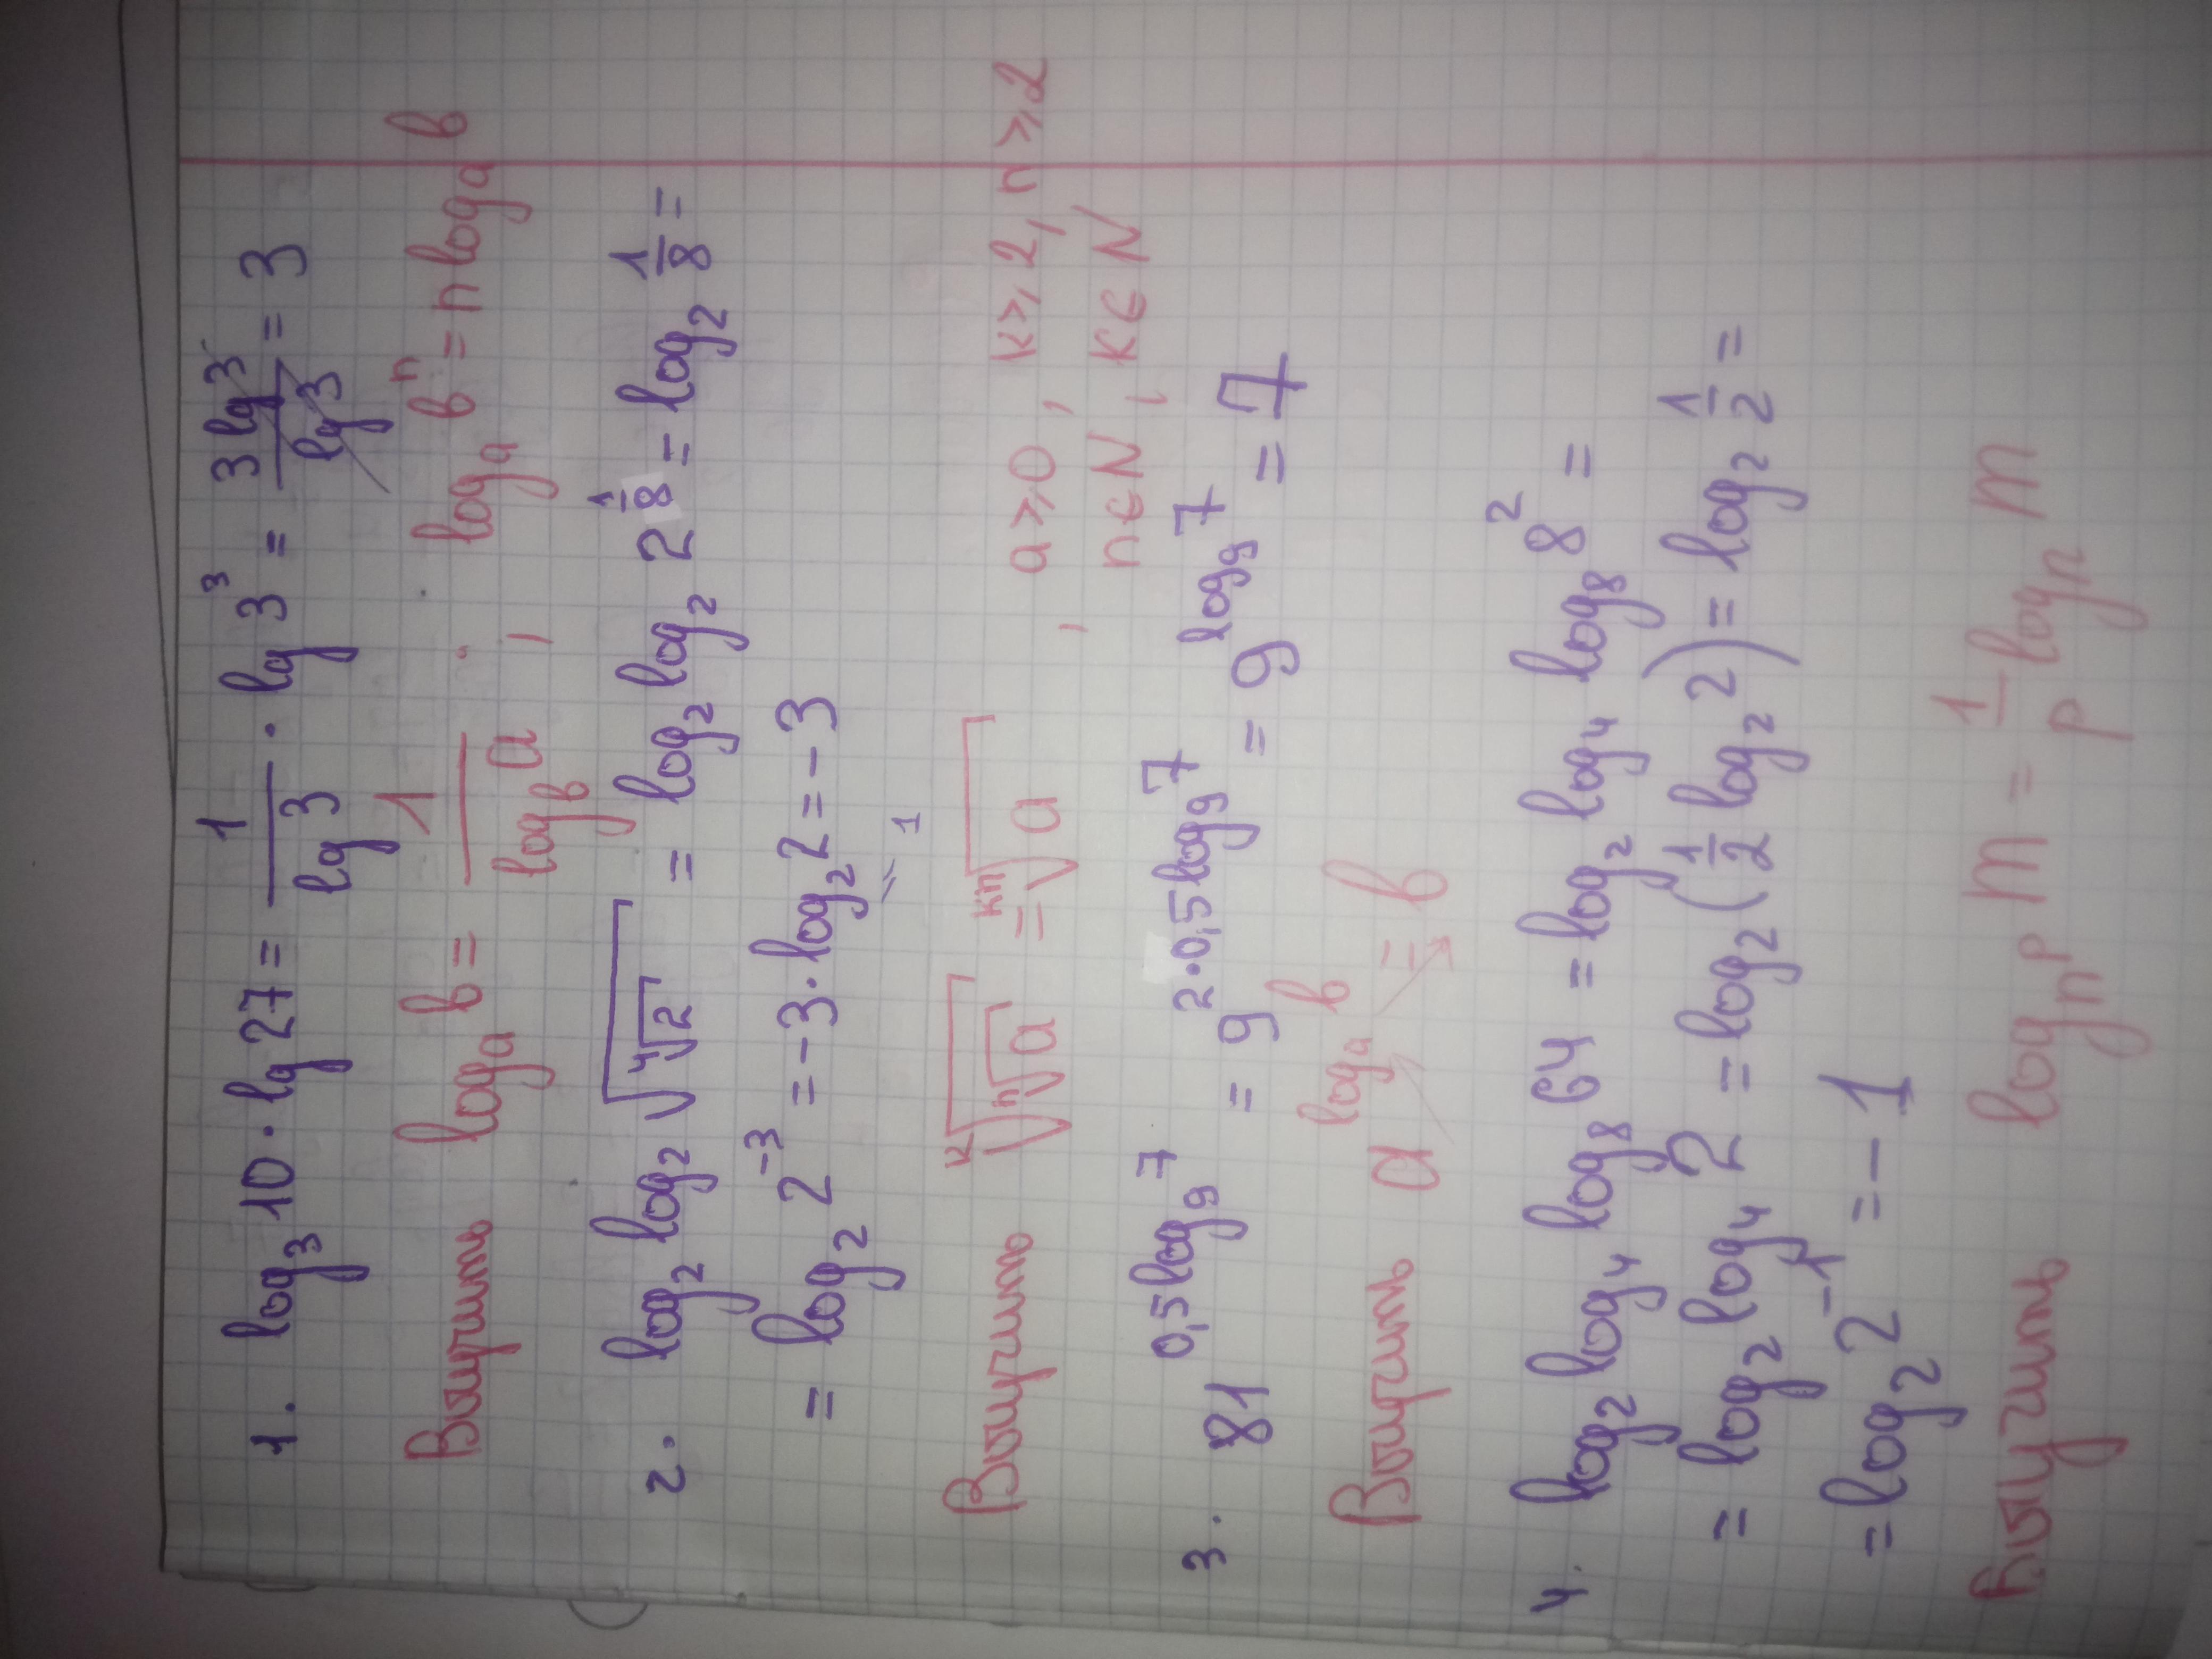 1. log₃10·lg27 = 1/lg3 · lg3³ = 3lg3/lg3 = 3
Выучить logₐb = 1/log_b a ; logₐbⁿ = n logₐb
2. log₂log₂√⁴√2 = log₂log₂2^(1/8) = log₂ 1/8 =
= log₂2⁻³ = -3·log₂2 = -3
1
Выучить ᵏ√ⁿ√a = ᵏⁿ√a , a ⩾ 0, k ⩾ 2, n ⩾ 2
n ∈ N, k ∈ N
3. 81^(0,5log₉7) = 9^(2·0,5log₉7) = 9^(log₉7) = 7
Выучить a^(logₐb) = b
4. log₂log₄log₈64 = log₂log₄log₈8² =
= log₂log₄2 = log₂(1/2 log₂2) = log₂ 1/2 =
= log₂2⁻¹ = -1
Выучить log_(nᵖ) m = 1/p logₙ m